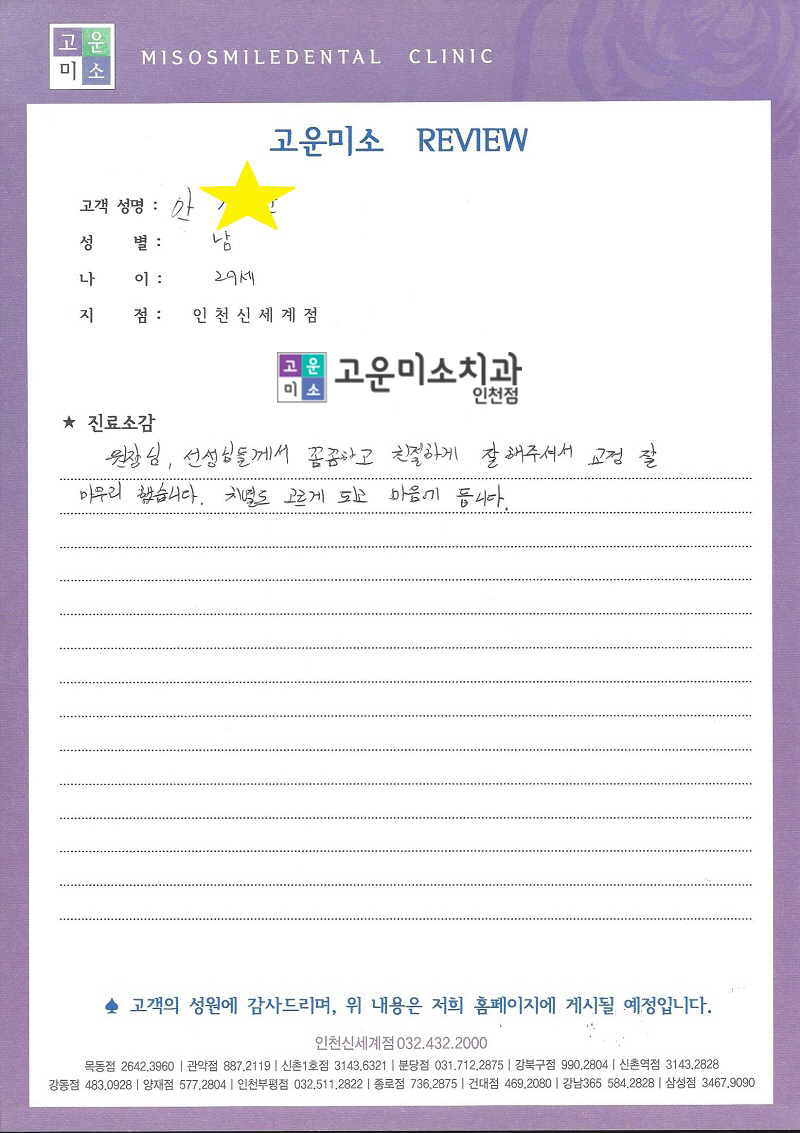 고운
미소
MISOSMILEDENTAL CLINIC
고운미소 REVIEW
고객 성명 : 안
성 별 : 남
나 이 : 29세
지 점 : 인천신세계점
고운
미소
고운미소치과
인천점
★ 진료소감
원장님, 선생님들께서 꼼꼼하고 친절하게 잘 해주셔서 교정 잘
마무리 했습니다. 치열도 고르게 되고 마음에 듭니다.
♠ 고객의 성원에 감사드리며, 위 내용은 저희 홈페이지에 게시될 예정입니다.
인천신세계점 032.432.2000
목동점 2642,3960 | 관악점 887,2119 | 신촌1호점 3143,6321 | 분당점 031.712,2875 | 강북구점 990,2804 | 신촌역점 3143,2828
강동점 483,0928 | 양재점 577,2804 | 인천부평점 032,511,2822 | 종로점 736,2875 | 건대점 469,2080 | 강남365 584,2828 | 삼성점 3467,9090